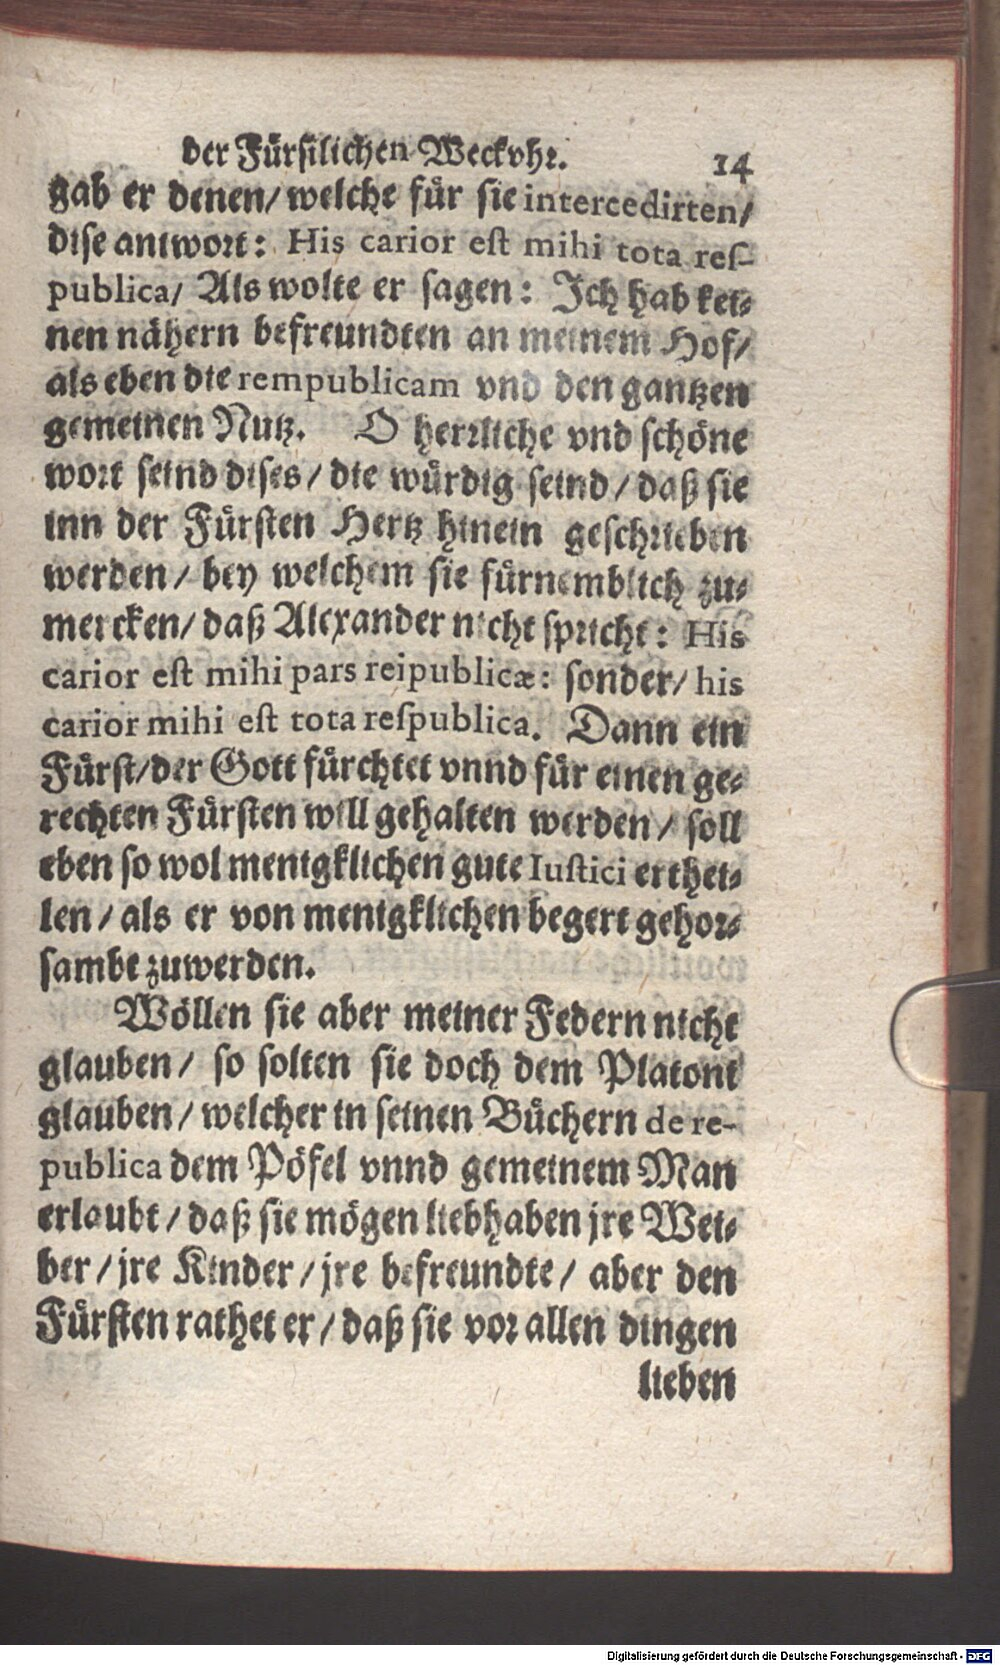 der Fürstlichen Weckvhr. 14
gab er denen/ welche für sie intercedirten/
dise antwort: His carior est mihi tota res-
publica/ Als wolte er sagen: Ich hab kei-
nen nähern befreundten an meinem Hof/
als eben die rempublicam vnd den gantzen
gemeinen Nutz. O herrliche vnd schöne
wort seind dises/ die würdig seind/ daß sie
inn der Fürsten Hertz hinein geschrieben
werden/ bey welchem sie fürnemblich zu-
mercken/ daß Alexander nicht spricht: His
carior est mihi pars reipublicæ: sonder/ his
carior mihi est tota respublica. Dann ein
Fürst/ der Gott fürchtet vnnd für einen ge-
rechten Fürsten will gehalten werden/ soll
eben so wol menigklichen gute Iustici erthei-
len/ als er von menigklichen begert gehor-
sambt zuwerden.
Wöllen sie aber meiner Federn nicht
glauben/ so solten sie doch dem Platoni
glauben/ welcher in seinen Büchern de re-
publica dem Pöfel vnnd gemeinem Man
erlaubt/ daß sie mögen liebhaben jre Wei-
ber/ jre Kinder/ jre befreundte/ aber den
Fürsten rathet er/ daß sie vor allen dingen
lieben
Digitalisierung gefördert durch die Deutsche Forschungsgemeinschaft - DFG